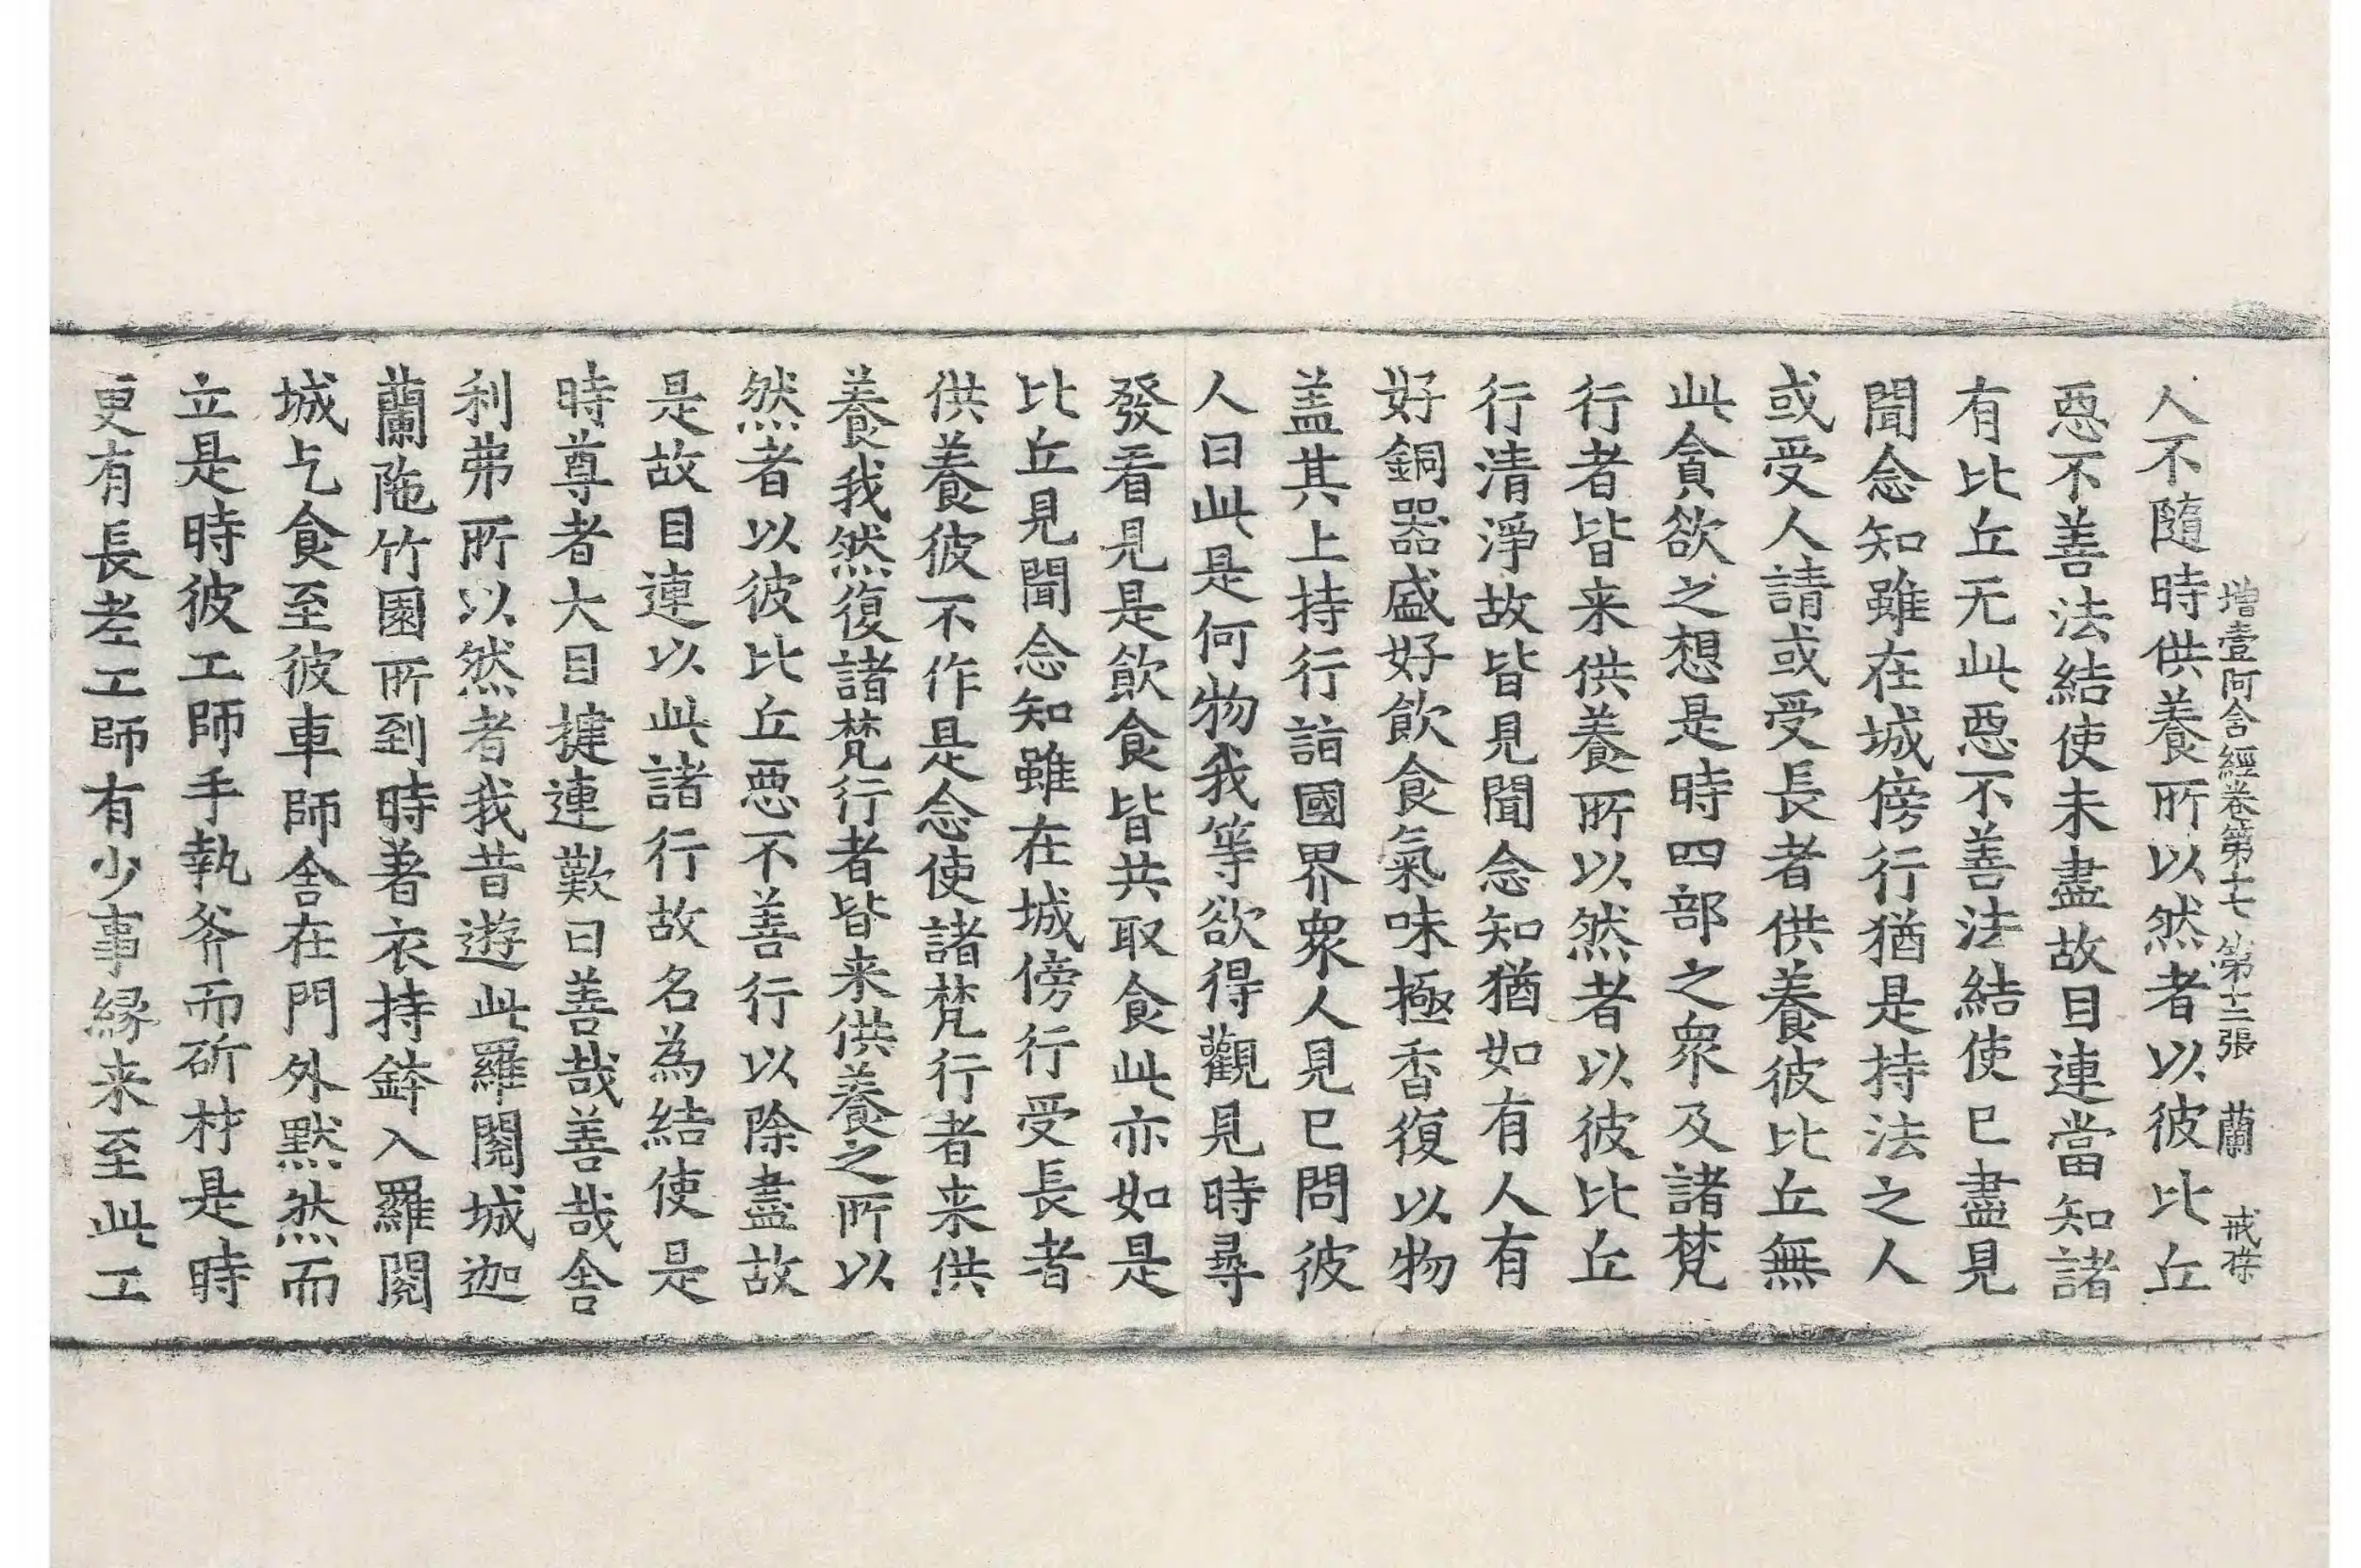 增壹阿含經卷第十七 第十三張 蘭 戒
人不隨時供養所以然者以彼比丘
惡不善法結使未盡故目連當知諸
有比丘无此惡不善法結使已盡見
聞念知雖在城傍行猶是持法之人
或受人請或受長者供養彼比丘無
此貪欲之想是時四部之衆及諸梵
行者皆来供養所以然者以彼比丘
行清淨故皆見聞念知猶如有人有
好銅器盛好飲食氣味極香復以物
盖其上持行詣國界衆人見已問彼
人曰此是何物我等欲得觀見時尋
發看見是飲食皆共取食此亦如是
比丘見聞念知雖在城傍行受長者
供養彼不作是念使諸梵行者来供
養我然復諸梵行者皆来供養之所以
然者以彼比丘惡不善行以除盡故
是故目連以此諸行故名為結使是
時尊者大目揵連歎曰善哉善哉舍
利弗所以然者我昔遊此羅閱城迦
蘭陁竹園所到時著衣持鉢入羅閱
城乞食至彼車師舍在門外黙然而
立是時彼工師手執斧而斫材是時
更有長老工師有少事緣来至此工